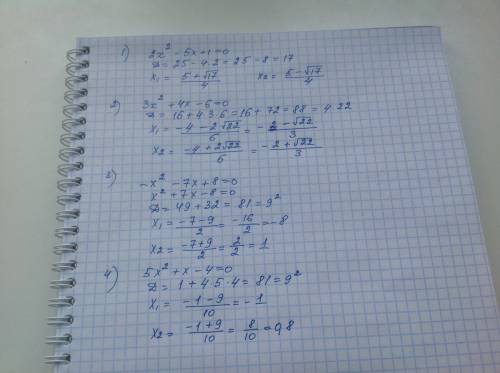 1) 2x² - 5x + 1 = 0
D = 25 - 4·2 = 25 - 8 = 17
x₁ = (5 + √17)/4 x₂ = (5 - √17)/4
2) 3x² + 4x - 6 = 0
D = 16 + 4·3·6 = 16 + 72 = 88 = 4·22
x₁ = (-4 - 2√22)/6 = (-2 - √22)/3
x₂ = (-4 + 2√22)/6 = (-2 + √22)/3
3) -x² - 7x + 8 = 0
x² + 7x - 8 = 0
D = 49 + 32 = 81 = 9²
x₁ = (-7 - 9)/2 = -16/2 = -8
x₂ = (-7 + 9)/2 = 2/2 = 1
4) 5x² + x - 4 = 0
D = 1 + 4·5·4 = 81 = 9²
x₁ = (-1 - 9)/10 = -1
x₂ = (-1 + 9)/10 = 8/10 = 0,8